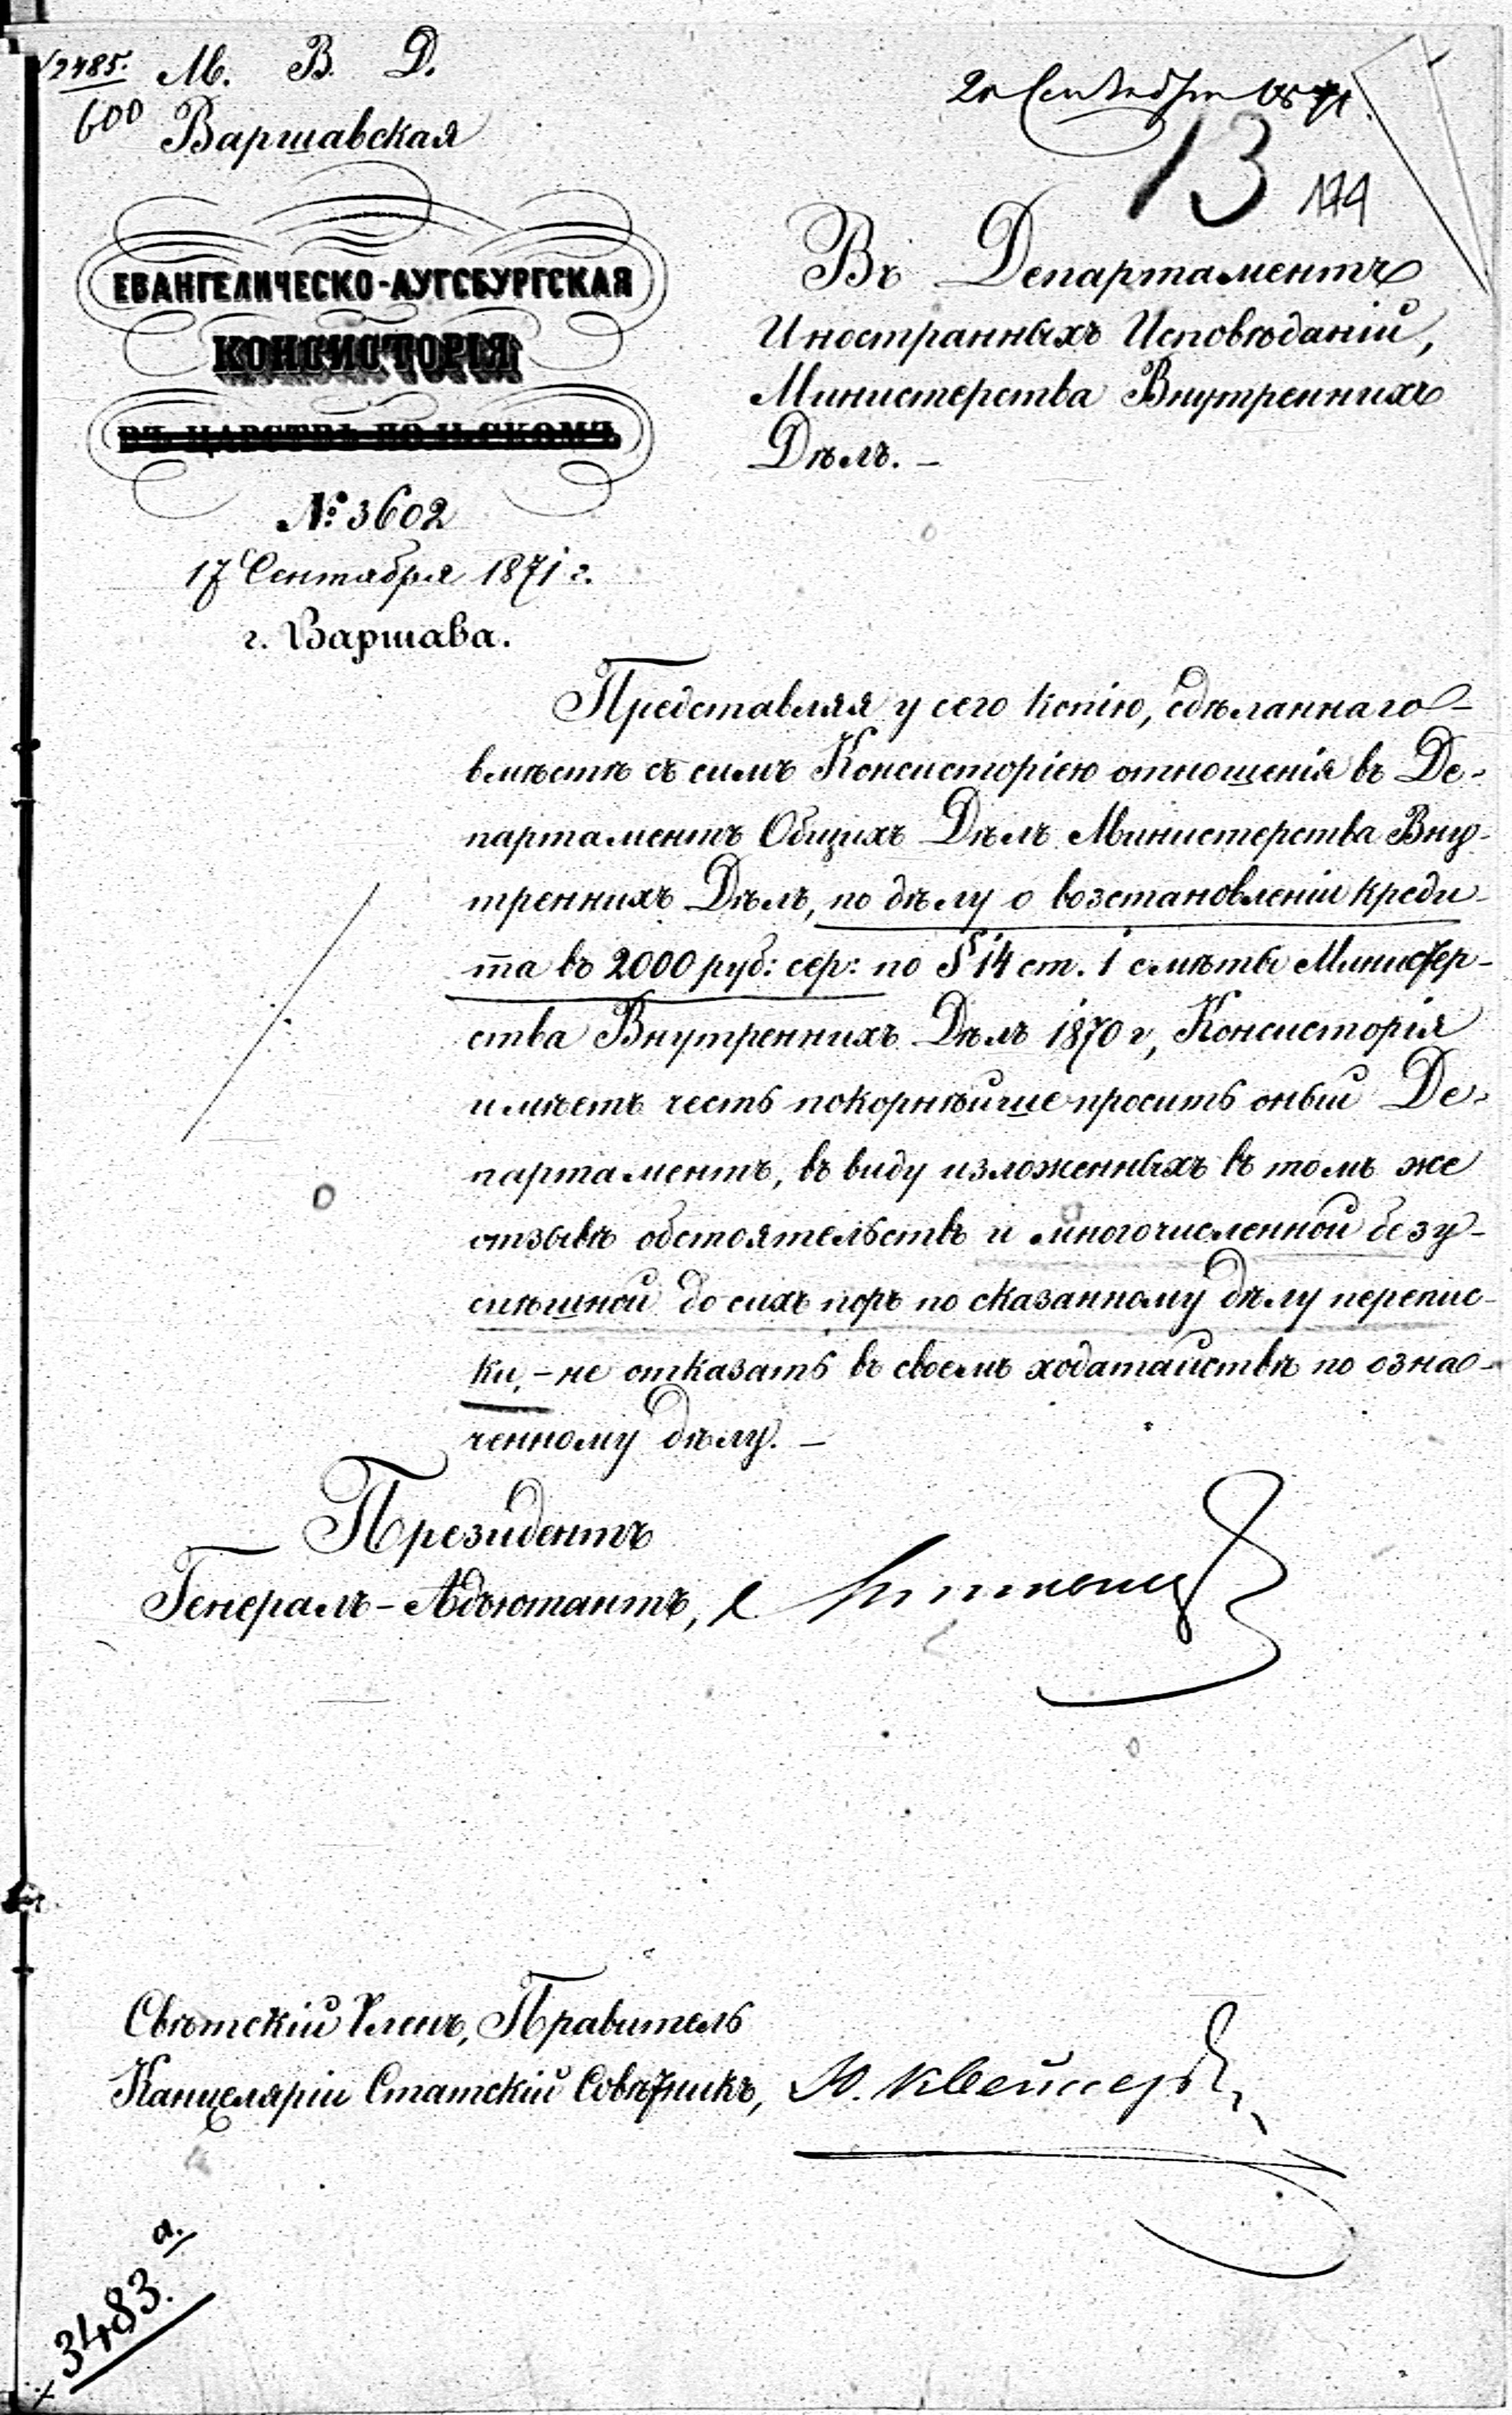 2485.
600
М. В. Д.
Варшавская
ЕВАНГЕЛИЧЕСКО-АУГСБУРГСКАЯ
КОНСИСТОРІЯ
ВЪ ЦАРСТВѢ ПОЛЬСКОМЪ
№ 3602
17 Сентября 1871 г.
г. Варшава.
Сентября 1871
13
174
Въ Департаментъ
Иностранныхъ Исповѣданій,
Министерства Внутреннихъ
Дѣлъ. –
Представляя у сего копію, сдѣланнаго
вмѣстѣ съ симъ Консисторіею отношенія въ Де-
партаментъ Общихъ Дѣлъ Министерства Вну-
треннихъ Дѣлъ, по дѣлу о возстановленіи креди-
та въ 2000 руб: сер: по § 14 ст. 1 смѣты Министер-
ства Внутреннихъ Дѣлъ 1870 г, Консисторія
имѣетъ честь покорнѣйше просить оный Де-
партаментъ, въ виду изложенныхъ въ томъ же
отзывѣ обстоятельствъ и многочисленной безу-
спѣшной до сихъ поръ по сказанному дѣлу перепис-
ки, – не отказать въ своемъ ходатайствѣ по озна-
ченному дѣлу. –
Президентъ
Генералъ-Адъютантъ,
Свѣтскій Членъ, Правитель
Канцеляріи Статскій Совѣтникъ,
3483. а.